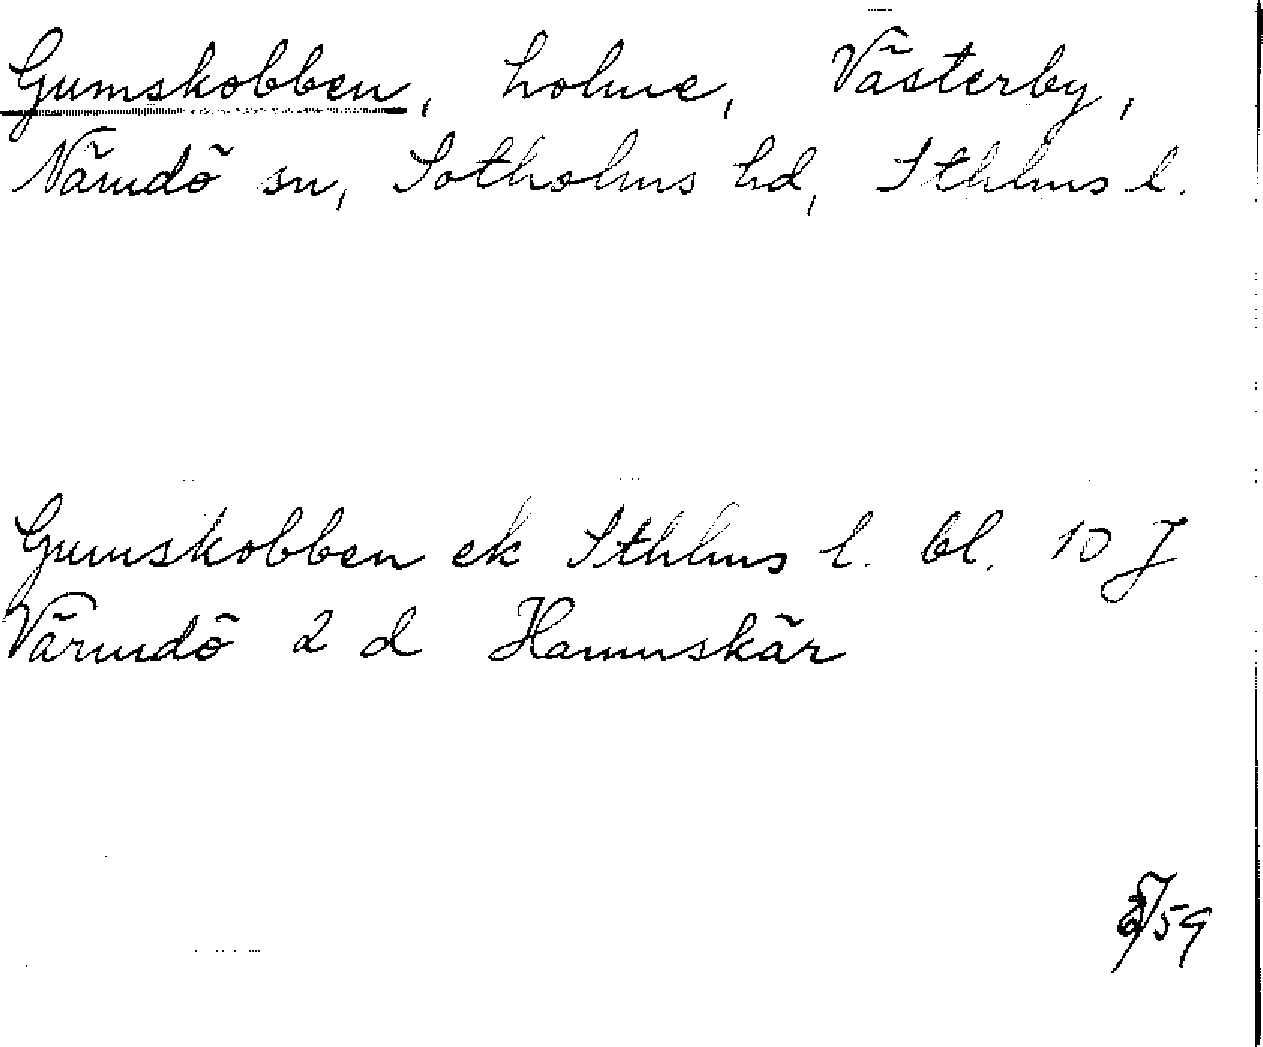 Gumskobben, holme, Västerby,
Nämdö sn, Sotholms hd, Sthlms l.
Gumskobben ek Sthlms l. bl. 10 J
Värmdö 2 d Hamnskär
/59